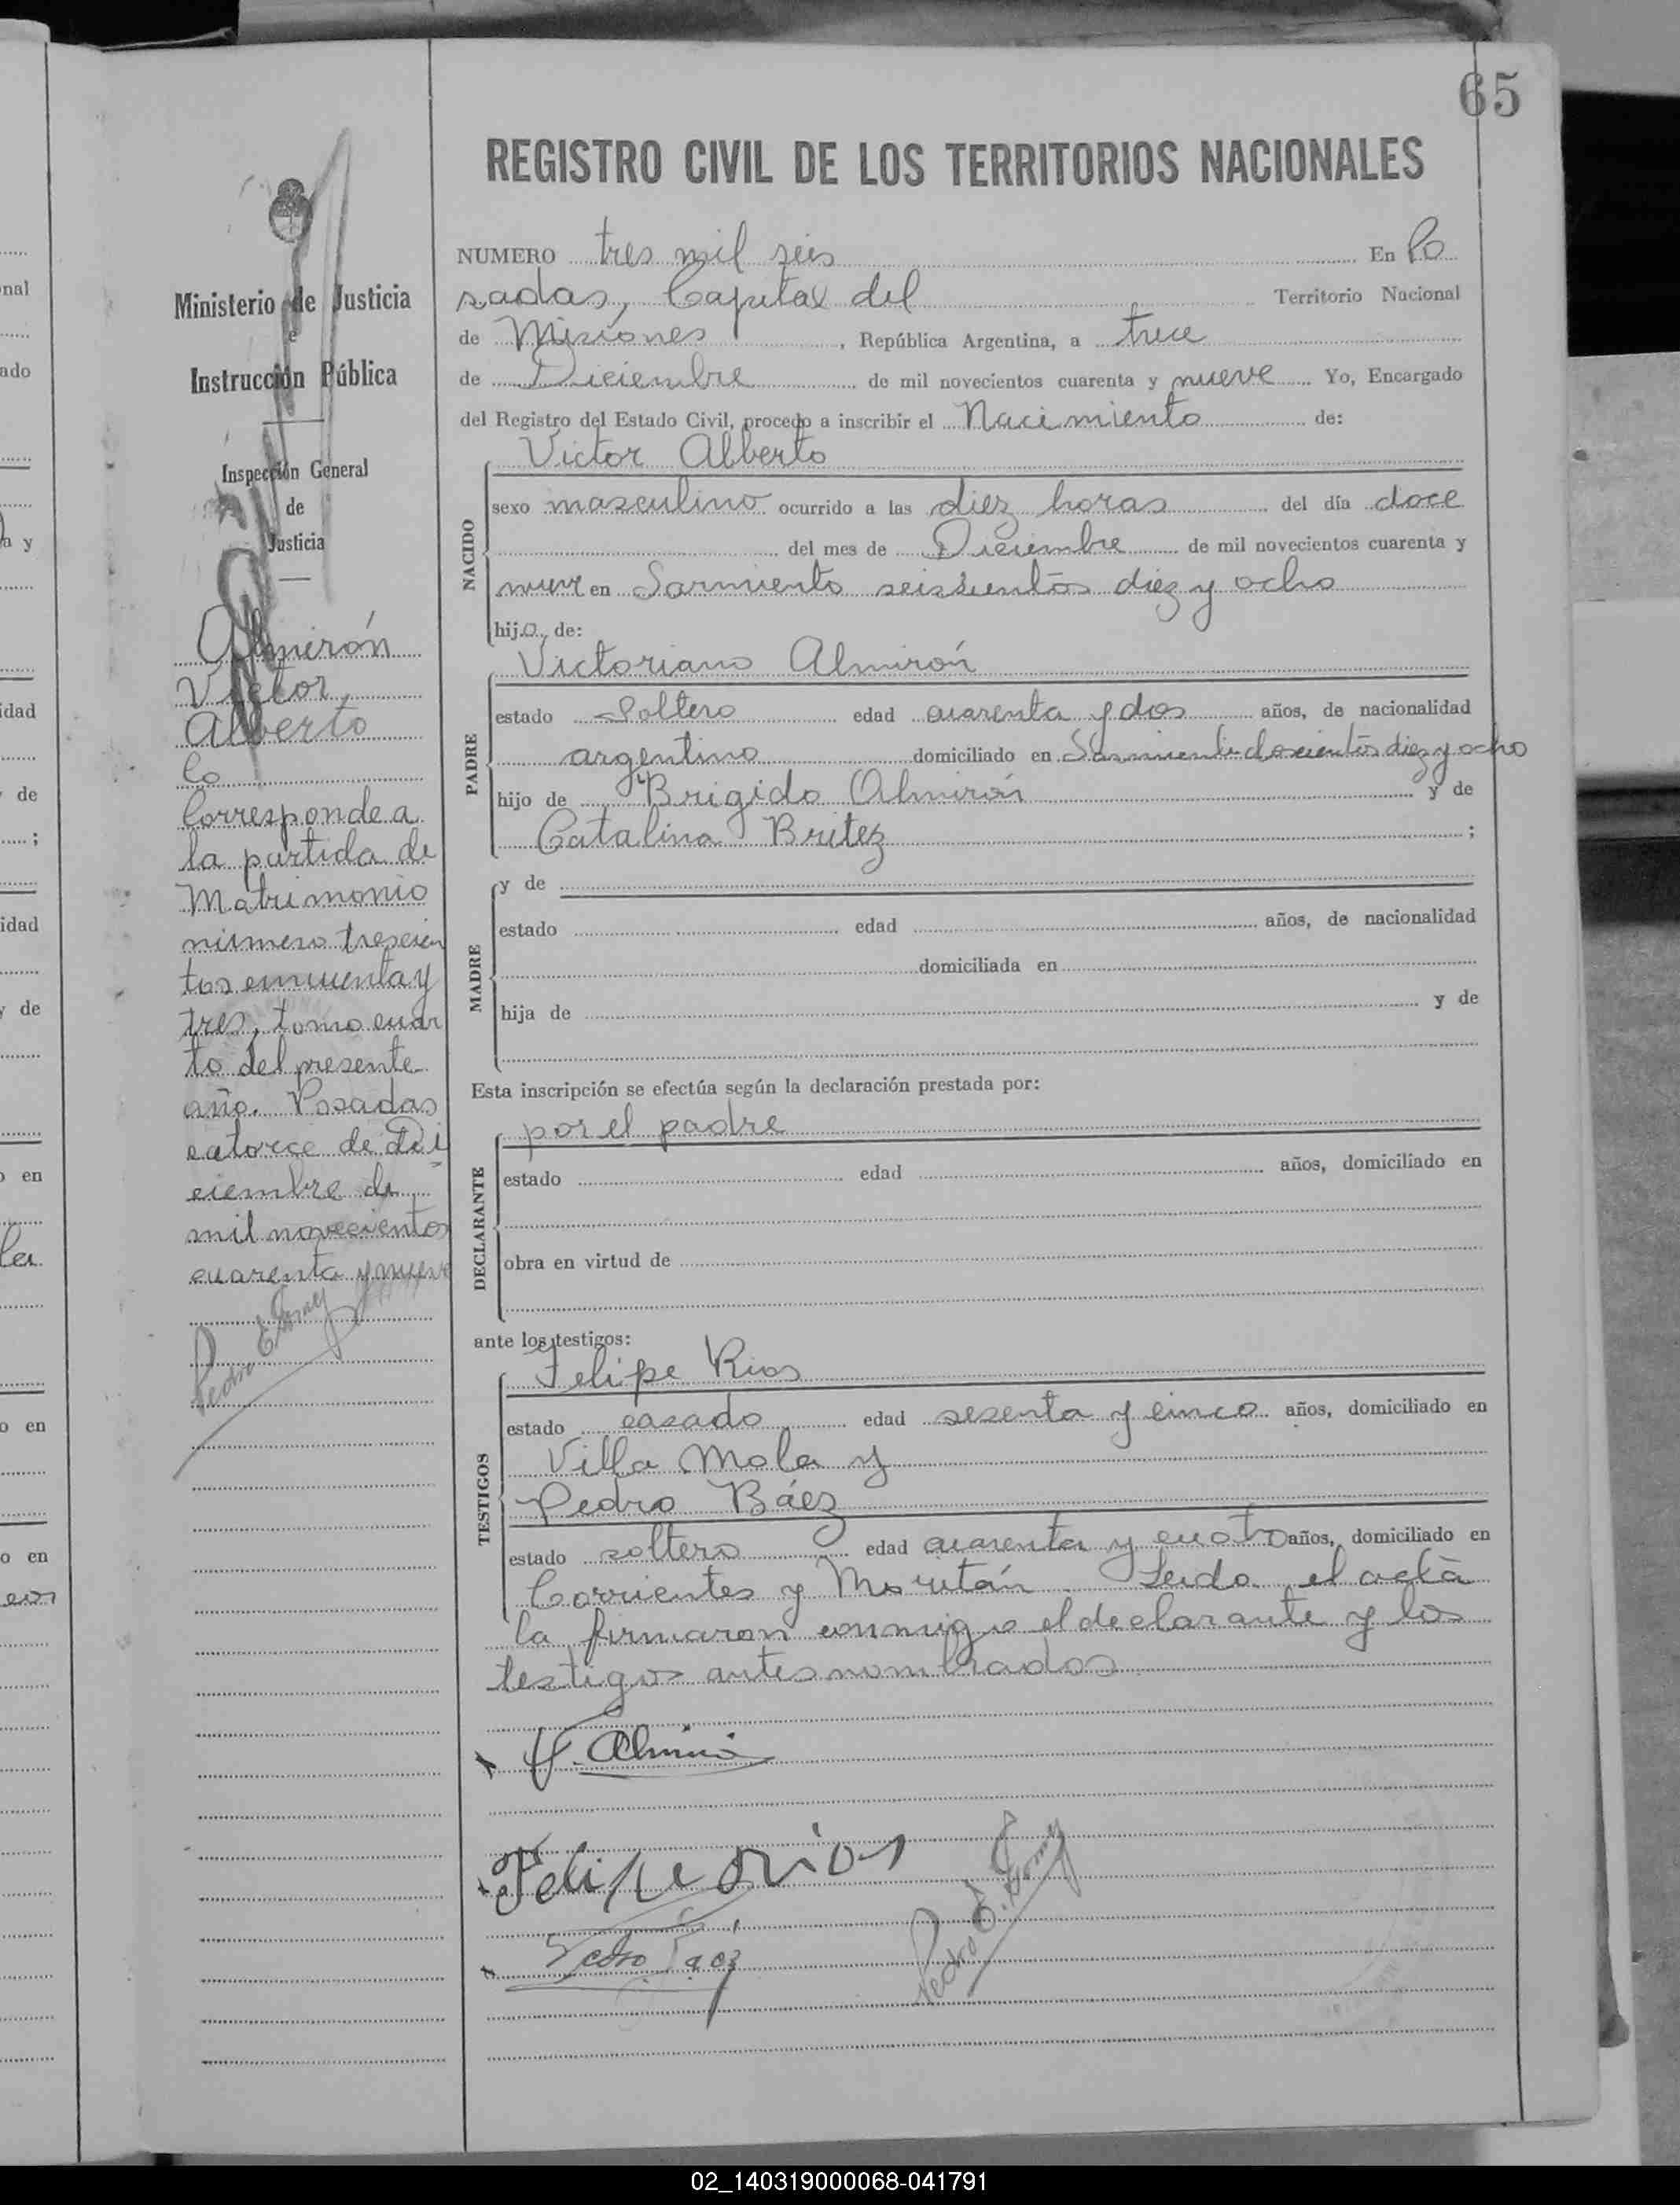 65
REGISTRO CIVIL DE LOS TERRITORIOS NACIONALES
NUMERO tres mil seis En Po
sadas, Capital del Territorio Nacional
de Misiones, República Argentina, a trece
de Diciembre de mil novecientos cuarenta y nueve Yo, Encargado
del Registro del Estado Civil, procedo a inscribir el Nacimiento de:
Victor Alberto
NACIDO
sexo masculino ocurrido a las diez horas del día doce
del mes de Diciembre de mil novecientos cuarenta y
nueve en Sarmiento seiscientos diez y ocho
hijo, de:
Victoriano Almirón
PADRE
estado soltero edad cuarenta y dos años, de nacionalidad
argentino domiciliado en Sarmiento doscientos diez y ocho
hijo de Brigido Almirón y de
Catalina Britez ;
MADRE
y de
estado edad años, de nacionalidad
domiciliada en
hija de y de
Esta inscripción se efectúa según la declaración prestada por:
por el padre
DECLARANTE
estado edad años, domiciliado en
obra en virtud de
ante los testigos:
Felipe Rios
TESTIGOS
estado casado edad sesenta y cinco años, domiciliado en
Villa Mola y
Pedro Báez
estado soltero edad cuarenta y cuatro años, domiciliado en
Corrientes y Moritán. Leida el acta
la firmaron conmigo el declarante y los
testigos antes nombrados.
V. Almiró
Felipe Rios
Pedro Baez
Pedro E.
Ministerio de Justicia
e
Instrucción Pública
Inspección General
de
Justicia
Almirón
Victor
Alberto
Co
Corresponde a
la partida de
Matrimonio
número trescien
tos cincuenta y
tres, tomo cuar
to del presente
año. Posadas
catorce de Di
ciembre de
mil novecientos
cuarenta y nueve
Pedro E.
nal
ado
a y
idad
y de
;
idad
y de
o en
la
o en
o en
02_140319000068-041791